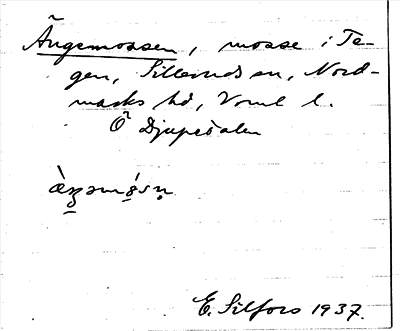 Ängemossen, mosse i Te-
gen, Sillerud sn, Nord-
marks hd, Vrml l.
Ö Djupedalen
E. Silfors 1937.